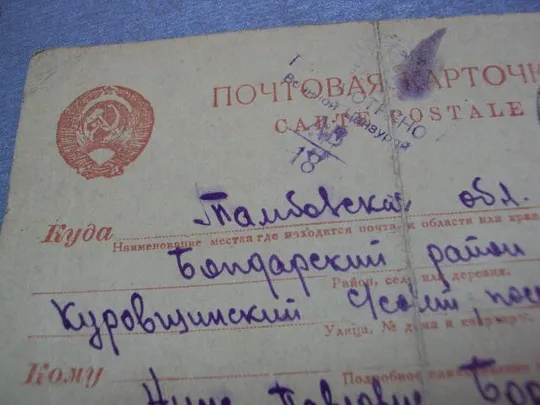 ПОЧТОВАЯ КАРТОЧК
CARTE POSTALE
Военной Цензурой
Куда Тамбовская обл.
Наименование места, где находится почта, и области или края
Бондарский район
Район, село или деревня.
Куровщинский с/совет, пос
Улица, № дома и квартиры.
Кому
Подробное
Нине Павловне Бор